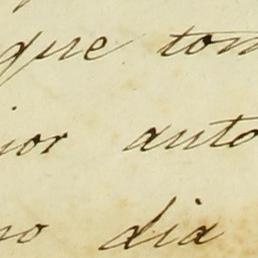 que tom
ior auto
no dia